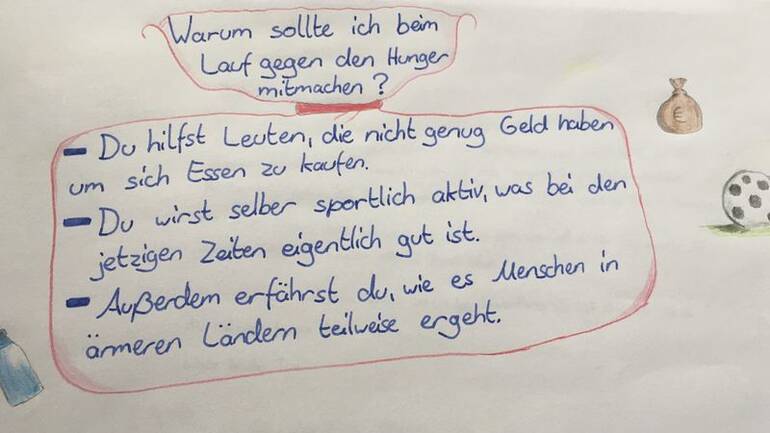 Warum sollte ich beim
Lauf gegen den Hunger
mitmachen?
- Du hilfst Leuten, die nicht genug Geld haben
um sich Essen zu kaufen.
- Du wirst selber sportlich aktiv, was bei den
jetzigen Zeiten eigentlich gut ist.
- Außerdem erfährst du, wie es Menschen in
ärmeren Ländern teilweise ergeht.
€